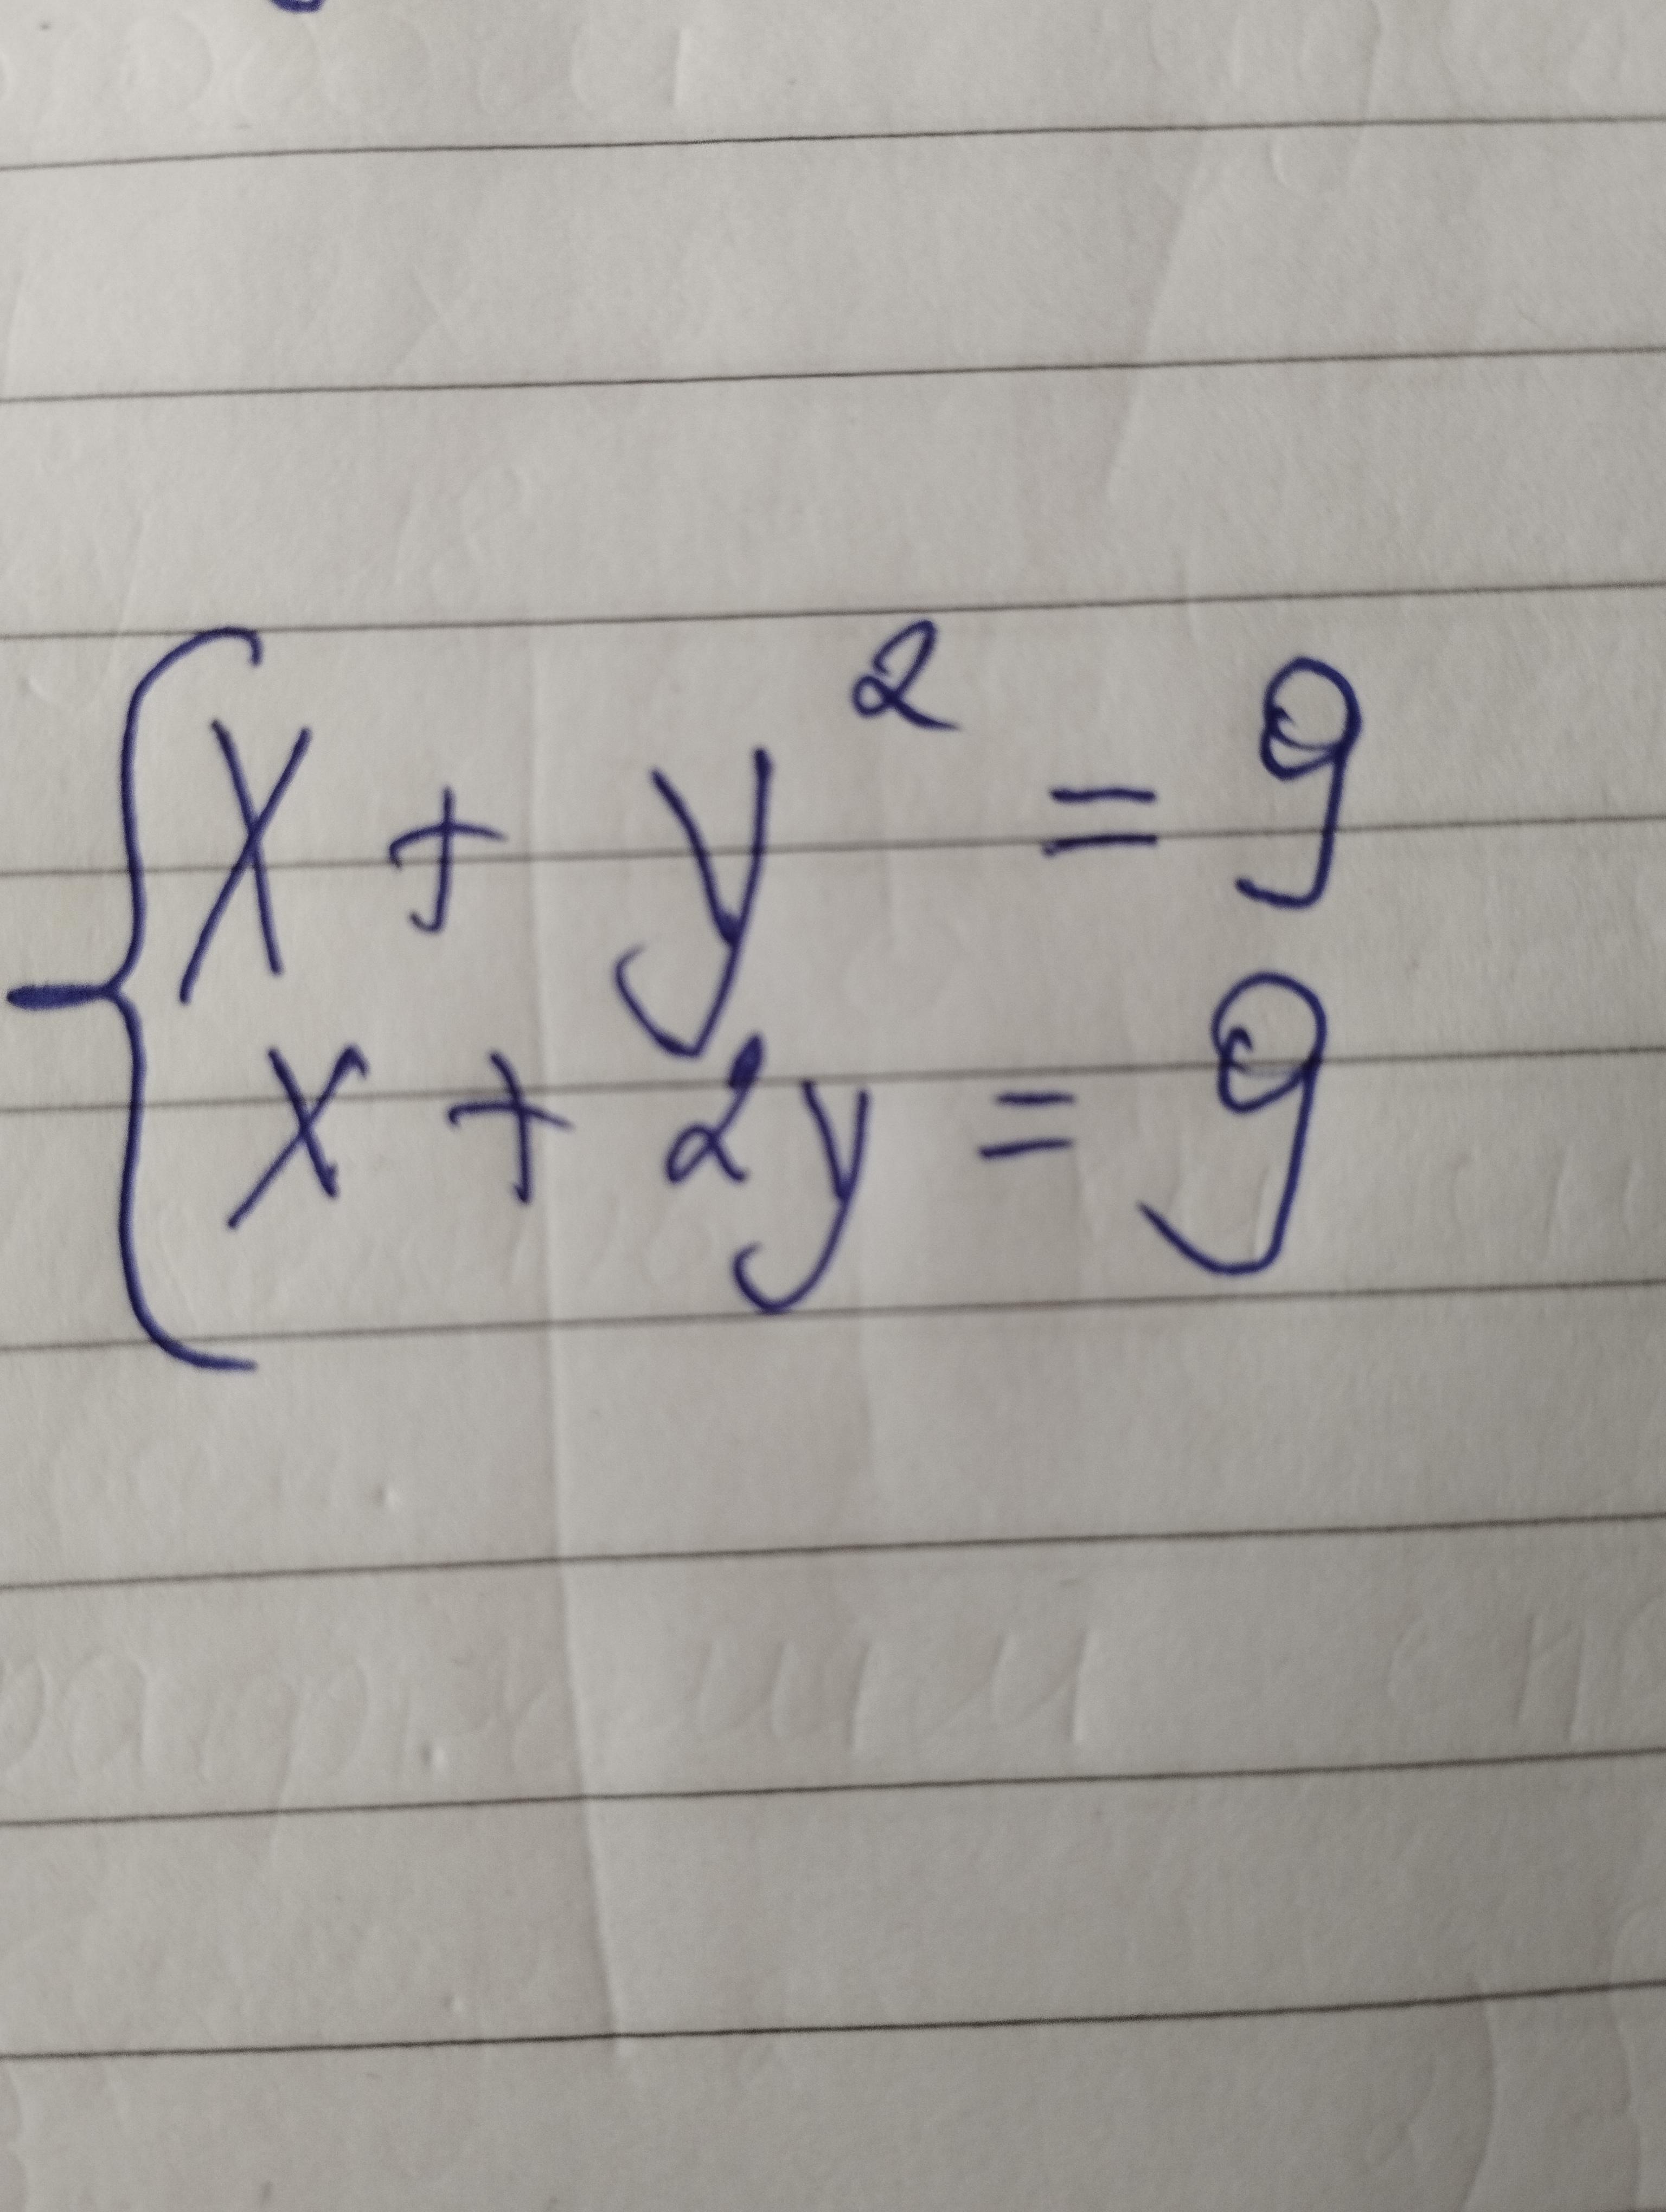 x + y² = 9
x + 2y = 9